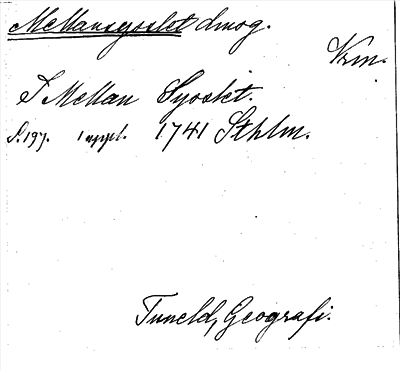 Mellansysslet dmog.
Vrm.
I Mellan Sysslet.
S. 197. 1 uppl. 1741 Sthlm.
Tuneld, Geografi.